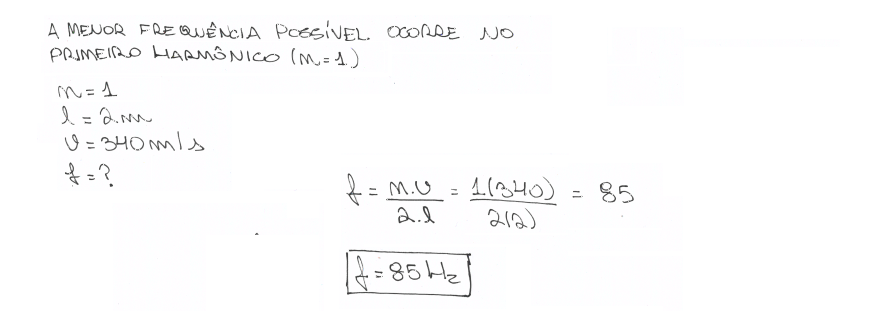 A MENOR FREQUÊNCIA POSSÍVEL OCORRE NO
PRIMEIRO HARMÔNICO (n=1)
n = 1
l = 2 m
v = 340 m/s
f = ?
f = n.v / 2.l = 1(340) / 2(2) = 85
f = 85 Hz